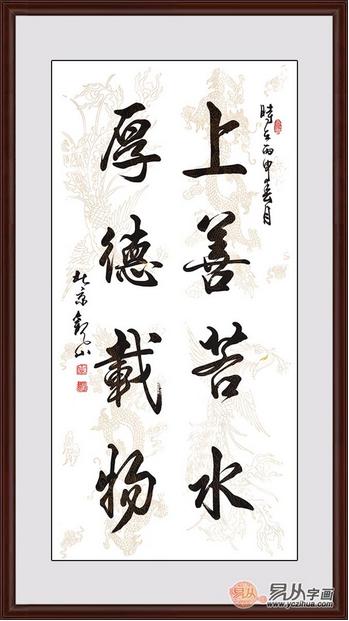 時在丙申春月
上善若水
厚德載物
北京觀山
易从字画
www.yczihua.com